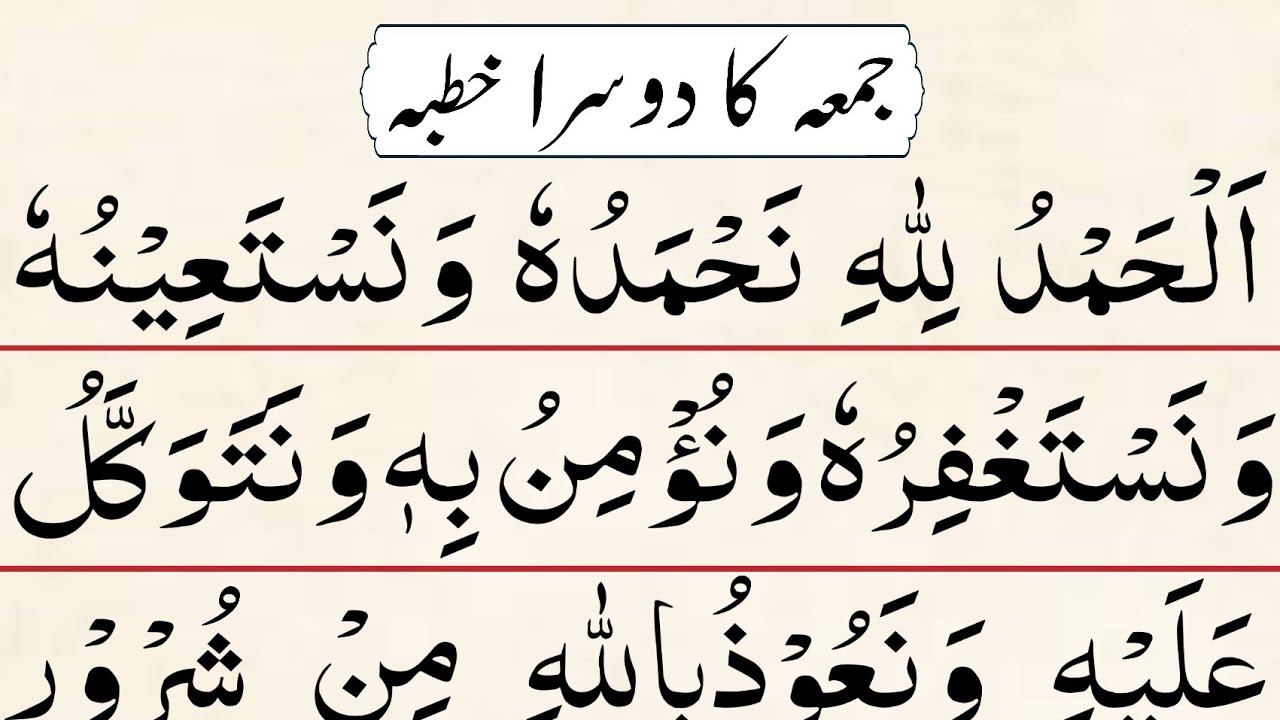 جمعہ کا دوسرا خطبہ
اَلْحَمْدُ لِلّٰهِ نَحْمَدُهٗ وَنَسْتَعِيْنُهٗ
وَنَسْتَغْفِرُهٗ وَنُؤْمِنُ بِهٖ وَنَتَوَكَّلُ
عَلَيْهِ وَنَعُوْذُ بِاللّٰهِ مِنْ شُرُوْرِ